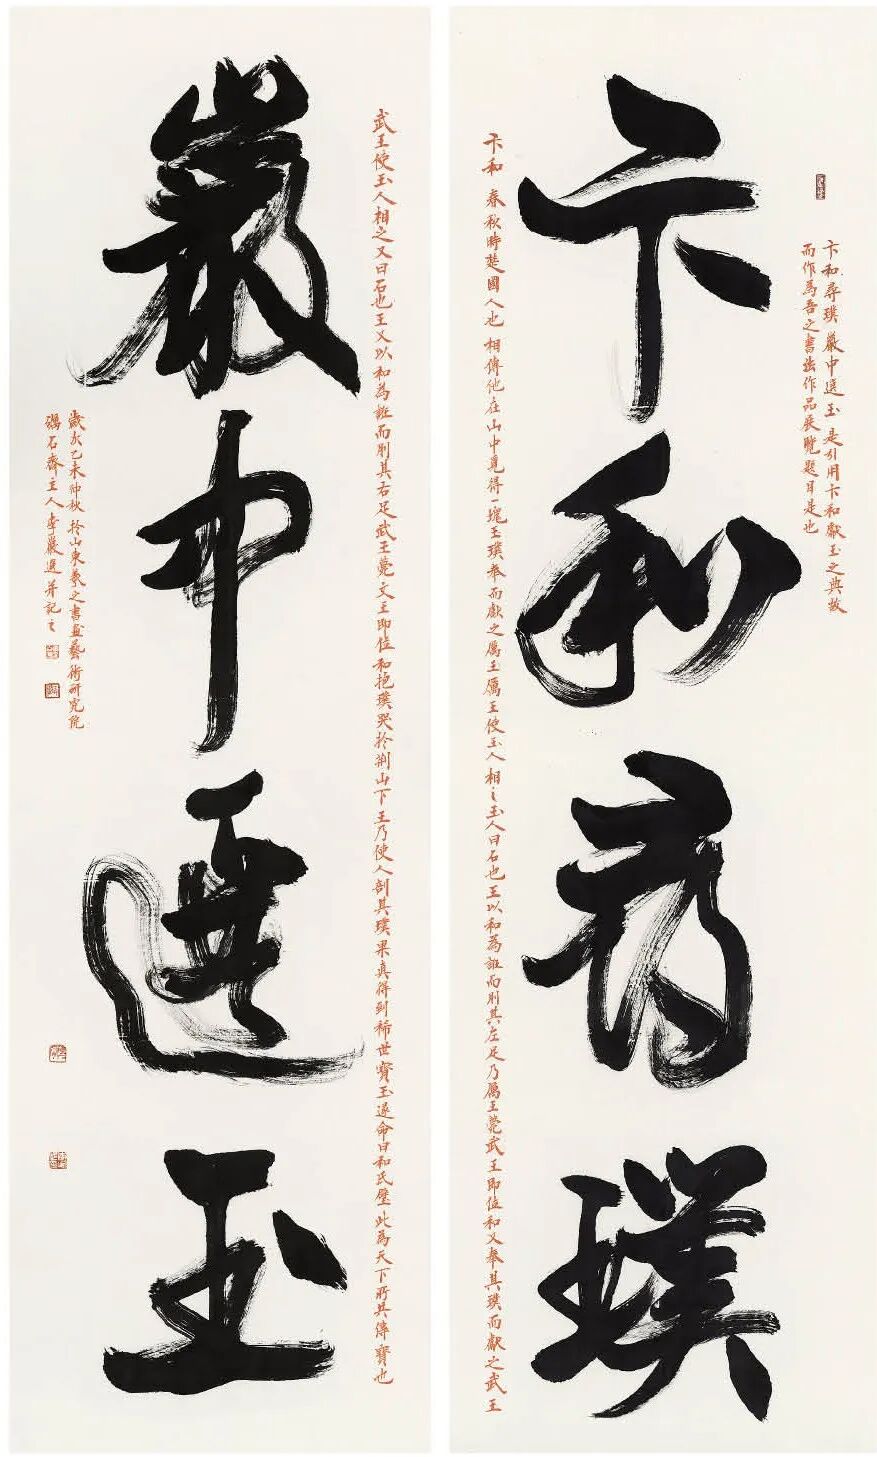 卞和尋璞
卞和尋璞 巖中選玉 是引用卞和獻玉之典故
而作為吾之書法作品展覽題目是也
卞和 春秋時楚國人也 相傳他在山中覓得一塊玉璞奉而獻之厲王厲王使玉人相之玉人曰石也王以和為誑而刖其左足乃厲王薨武王即位和又奉其璞而獻之武王
武王使玉人相之又曰石也王又以和為誑而刖其右足武王薨文王即位和抱璞哭於荆山下王乃使人剖其璞果真得到稀世寶玉遂命曰和氏璧此為天下所共傳寶也
巖中選玉
歲次乙未仲秋於山東羲之書画藝術研究院
石齋主人李巖選并記之